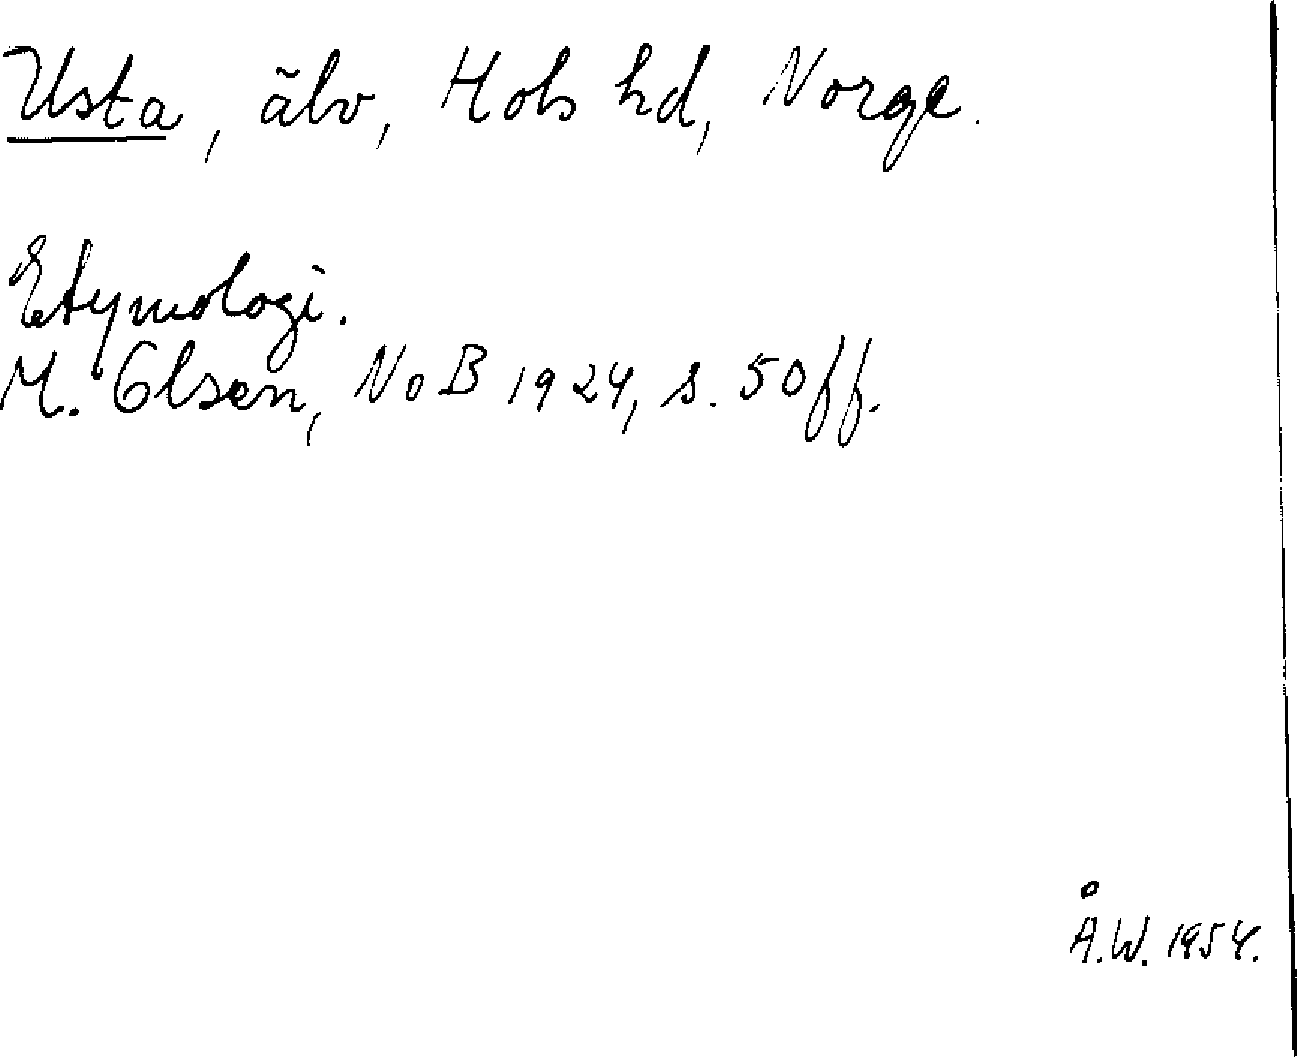 Usta, älv, Hols hd, Norge.
Etymologi.
M. Olsen, NoB 1924, s. 50ff.
Å.W. 1954.